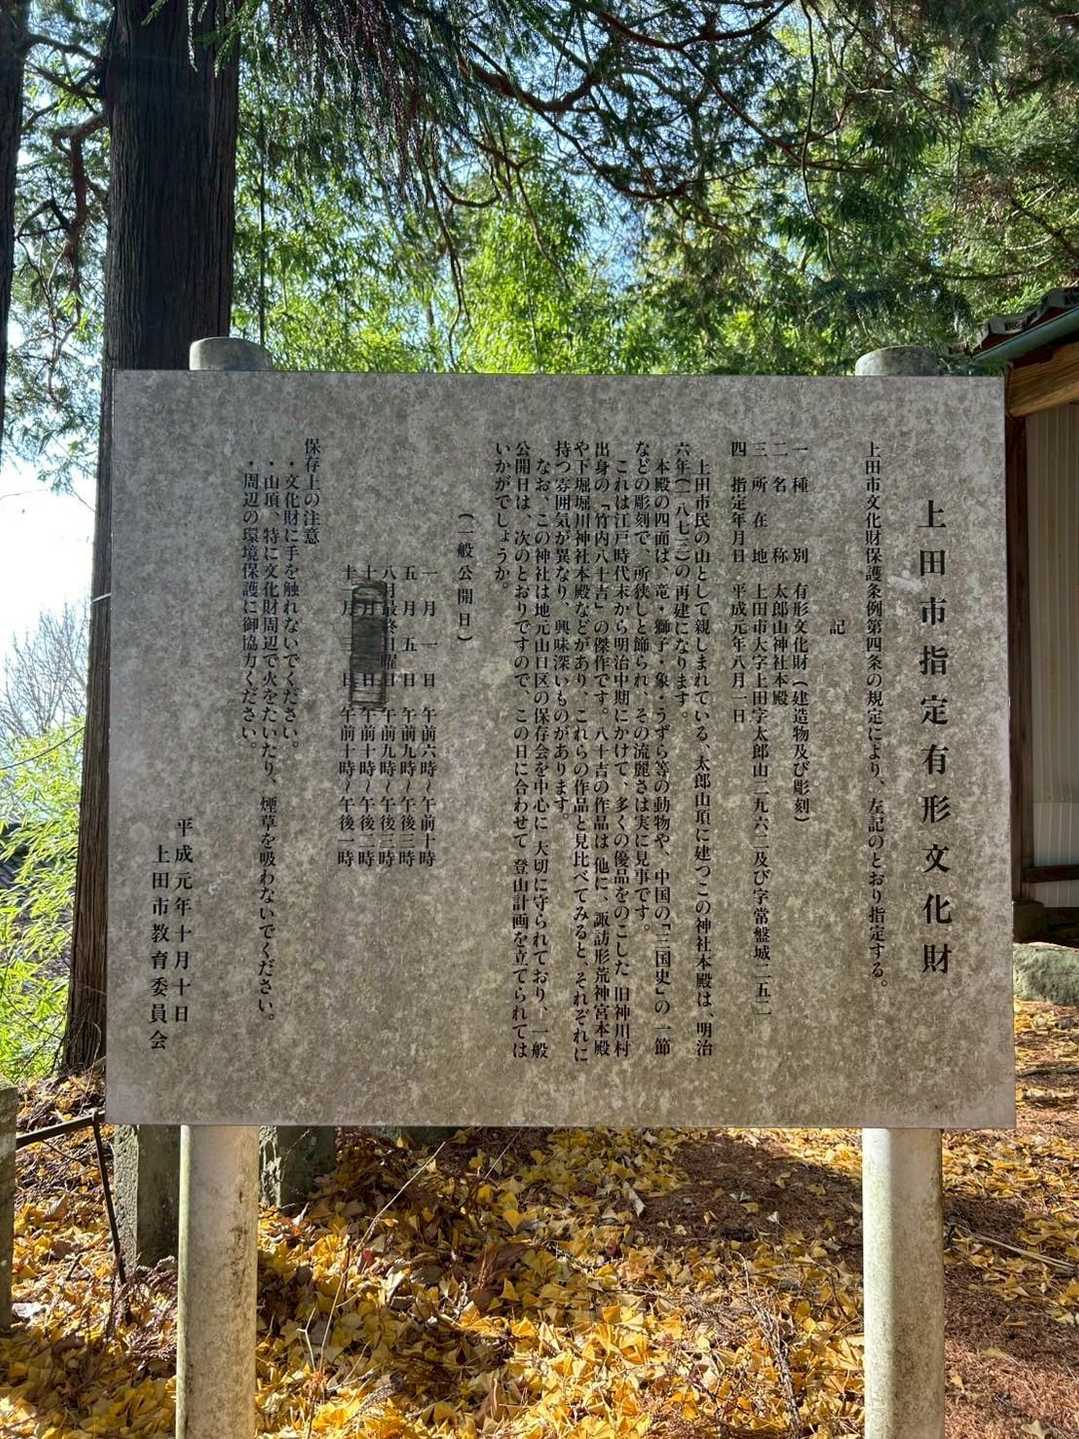 上田市指定有形文化財
上田市文化財保護条例第四条の規定により、左記のとおり指定する。
記
一 種別 有形文化財(建造物及び彫刻)
二 名称 太郎山神社本殿
三 所在地 上田市大字上田字太郎山二九六二及び字常盤城二五一一
四 指定年月日 平成元年八月一日
上田市民の山として親しまれている、太郎山頂に建つこの神社本殿は、明治
六年(一八七三)の再建になります。
本殿の四面は、竜・獅子・象・うずら等の動物や、中国の「三国史」の一節
などの彫刻で、所狭しと飾られ、その流麗さは実に見事です。
これは江戸時代末から明治中期にかけて、多くの優品をのこした旧神川村
出身の「竹内八十吉」の傑作です。八十吉の作品は他に、諏訪形荒神宮本殿
や下堀堀川神社本殿などがあり、これらの作品と見比べてみると、それぞれに
持つ雰囲気が異なり、興味深いものがあります。
なお、この神社は地元山口区の保存会を中心に大切に守られており、一般
公開日は、次のとおりですので、この日に合わせて登山計画を立てられては
いかがでしょうか。
(一般公開日)
一月一日 午前六時〜午前十時
五月五日 午前九時〜午後三時
八月最終日曜日 午前九時〜午後三時
十月 日 午前十時〜午後二時
十二月三 日 午前十時〜午後一時
保存上の注意
・文化財に手を触れないでください。
・山頂、特に文化財周辺で火をたいたり、煙草を吸わないでください。
・周辺の環境保護に御協力ください。
平成元年十月十日
上田市教育委員会